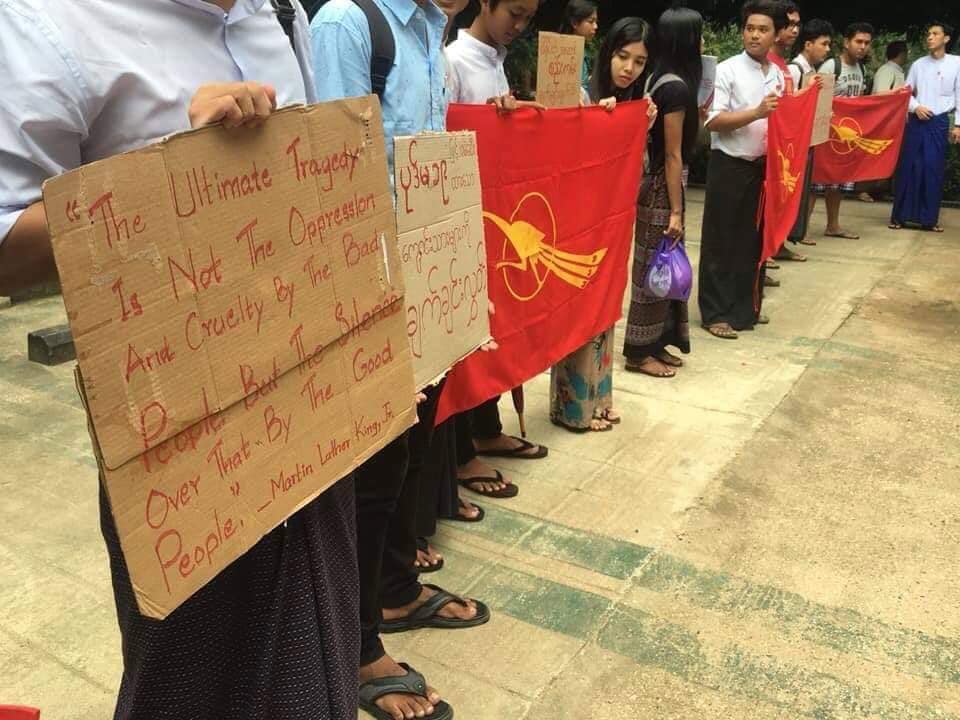 "The Ultimate Tragedy
Is Not The Oppression
And Cruelty By The Bad
People But The Silence
Over That "By The Good
People." _Martin Luther King, Jr.
ပုဒ်မ
ကျောင်းသားများကို
ချက်ချင်းလွှတ်